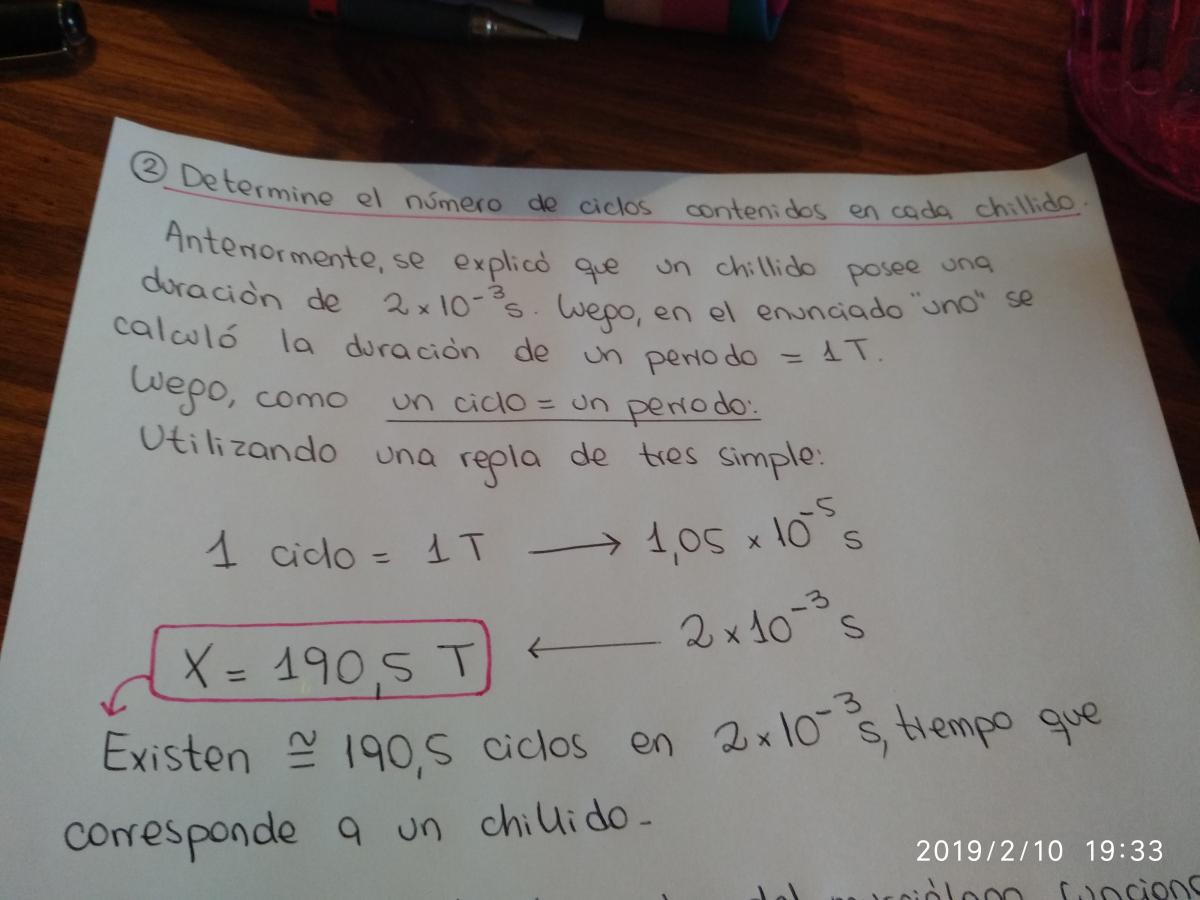 ② Determine el número de ciclos contenidos en cada chillido.
Anteriormente, se explicó que un chillido posee una
duración de 2 x 10⁻³ s. Luego, en el enunciado "uno" se
calculó la duración de un periodo = 1T.
Luego, como un ciclo = un periodo:
Utilizando una regla de tres simple:
1 ciclo = 1 T ⟶ 1,05 x 10⁻⁵ s
X = 190,5 T ⟵ 2 x 10⁻³ s
Existen ≅ 190,5 ciclos en 2 x 10⁻³ s, tiempo que
corresponde a un chillido.
2019/2/10 19:33
del murciélago funciona